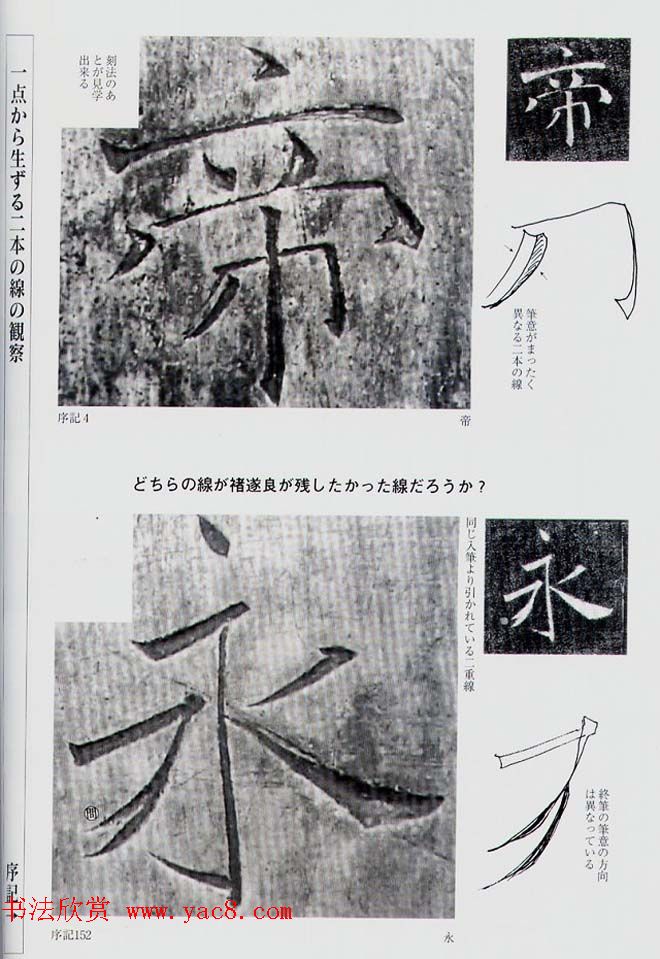 一点から生ずる二本の線の観察
刻法のあ
とが見学
出来る
帝
帝
筆意がまったく
異なる二本の線
序記4
帝
どちらの線が褚遂良が残したかった線だろうか?
永
同じ入筆より引かれている二重線
永
終筆の筆意の方向
は異なっている
序記
序記152
永
书法欣赏 www.yac8.com